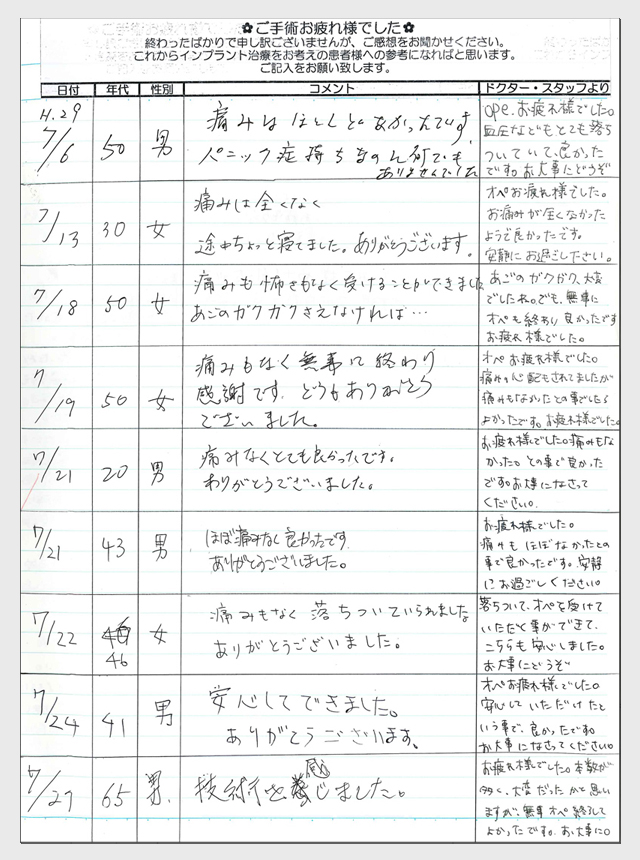 ✿ご手術お疲れ様でした✿
終わったばかりで申し訳ございませんが、ご感想をお聞かせください。
これからインプラント治療をお考えの患者様への参考になればと思います。
ご記入をお願い致します。
日付 年代 性別 コメント ドクター・スタッフより
H.29
7/6 50 男
痛みはほとんどなかったです。
パニック症持ちなのに何でも
ありませんでした
ope、お疲れ様でした。
血圧などもとても落ち
ついていて、良かった
です。お大事にどうぞ
7/13 30 女
痛みは全くなく
途中ちょっと寝てました。ありがとうございます。
オペお疲れ様でした。
お痛みが全くなかった
ようで良かったです。
安静にお過ごしください。
7/18 50 女
痛みも怖さもなく受けることができました
あごのガクガクさえなければ…
あごのガクガク、大変
でしたね。でも、無事に
オペも終わり良かったです
お疲れ様でした。
7/19 50 女
痛みもなく無事に終わり
感謝です。どうもありがとう
ございました。
オペお疲れ様でした。
痛みの心配もされてましたが
痛みもなかったとの事でしたら
よかったです。お疲れ様でした。
7/21 20 男
痛みなくとても良かったです。
ありがとうございました。
お疲れ様でした。痛みもな
かった。との事で良かった
です。お大事になさって
ください。
7/21 43 男
ほぼ痛みなく良かったです
ありがとうございました。
お疲れ様でした。
痛みもほぼなかったとの
事で良かったです。安静
にお過ごしください。
7/22 46 女
痛みもなく落ちついていられました
ありがとうございました。
落ちついて、オペを受けて
いただく事ができて、
こちらも安心しました。
お大事にどうぞ
7/24 41 男
安心してできました。
ありがとうございます。
オペお疲れ様でした。
安心していただけたと
いう事で、良かったです。
お大事になさってください。
7/27 65 男
技術を感じました。
お疲れ様でした。本数が
多く、大変だったかと思い
ますが、無事オペ終了して
よかったです。お大事に。